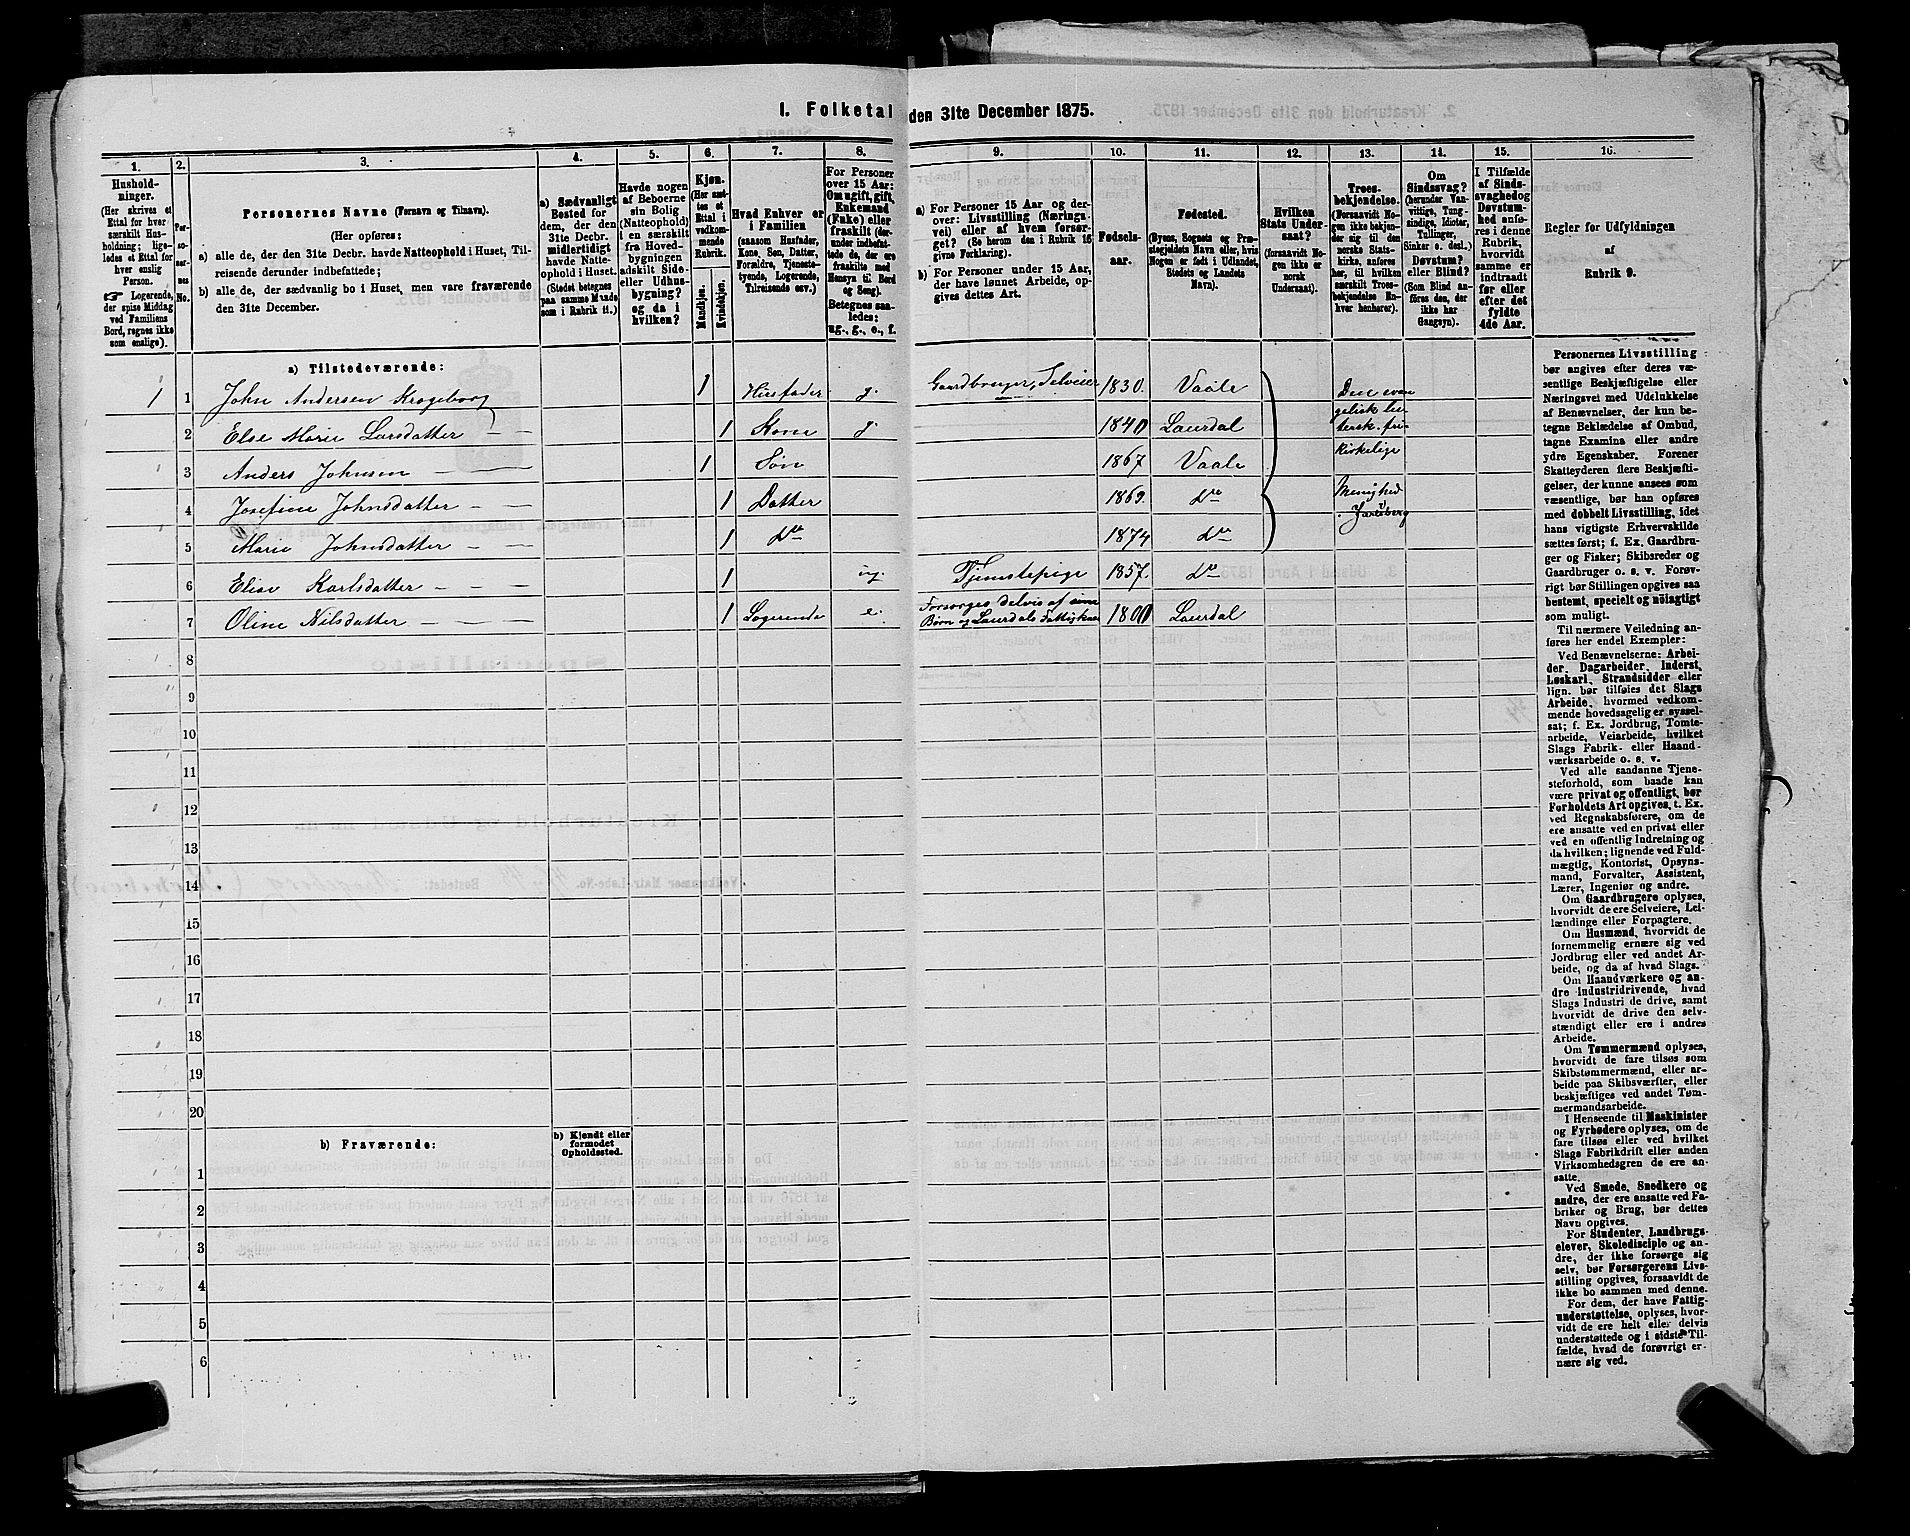 1. Folketal den 31te December 1875.
1.
Hushold-
ninger.
(Her skrives et
Ettal for hver
særskilt Hus-
holdning; lige-
ledes et Ettal for
hver enslig
Person.
☞ Logerende,
der spise Middag
ved Familiens
Bord, regnes ikke
som enslige).
2.
Per-
so-
ner-
nes
No.
3.
Personernes Navne (Fornavn og Tilnavn).
(Her opføres:
a) alle de, der den 31te Decbr. havde Natteophold i Huset, Til-
reisende derunder indbefattede;
b) alle de, der sædvanlig bo i Huset, men vare fraværende
den 31te December.
4.
a) Sædvanligt
Bosted for
dem, der den
31te Decbr.
midlertidigt
havde Natte-
ophold i Huset.
(Stedet betegnes
paa samme Maade
som i Rubrik 11.)
5.
Havde nogen
af Beboerne
sin Bolig
(Natteophold)
i en særskilt
fra Hoved-
bygningen
adskilt Side-
eller Udhus-
bygning?
og da i
hvilken?
6.
Kjøn.
(Her sæt-
tes et
Ettal i
vedkom-
mende
Rubrik.
Mandkjøn.
Kvindekjøn.
7.
Hvad Enhver er
i Familien
(saasom Husfader,
Kone, Søn, Datter,
Forældre, Tjeneste-
tyende, Logerende,
Tilreisende osv.)
8.
For Personer
over 15 Aar:
Om ugift, gift,
Enkemand
(Enke) eller
fraskilt (der-
under indbefat-
tede de, der ere
fraskilte med
Hensyn til Bord
og Seng).
Betegnes saa-
ledes:
ug., g., e., f.
9.
a) For Personer 15 Aar og der-
over: Livsstilling (Nærings-
vei) eller af hvem forsør-
get? (Se herom den i Rubrik 16
givne Forklaring).
b) For Personer under 15 Aar,
der have lønnet Arbeide, op-
gives dettes Art.
10.
Fødsels-
aar.
11.
Fødested.
(Byens, Sognets og Præ-
stegjeldets Navn eller, hvis
Nogen er født i Udlandet,
Stedets og Landets
Navn).
12.
Hvilken
Stats Under-
saat?
(forsaavidt No-
gen ikke er
norsk
Undersaat).
13.
Troes-
bekjendelse.
(Forsaavidt No-
gen ikke bekjen-
der sig til den
norske Stats-
kirke, anføres
her, til hvilken
særskilt Troes-
bekjendelse En-
hver henhører).
14.
Om
Sindssvag?
(herunder Van-
vittige, Tung-
sindige, Idioter,
Tullinger,
Sinker o. desl.)
Døvstum?
eller Blind?
(Som Blind an-
føres den, der
ikke har
Gangsyn).
15.
I Tilfælde
af Sinds-
svaghed og
Døvstum-
hed anfø-
res i denne
Rubrik,
hvorvidt
samme er
indtraadt
før eller
efter det
fyldte
4de Aar.
16.
Regler for Udfyldningen
af
Rubrik 9.
a) Tilstedeværende:
1 1 John Andersen Krogeborg 1 Husfader g. Gaardbruger, Selveier 1830. Vaale Den evan
gelisk lu-
2 Else Marie Larsdatter — — 1 Kone g 1840 Laurdal thersk. fri-
kirkelige
3 Anders Johnsen — — 1 Søn 1867 Vaale
4 Josefine Johnsdatter — — 1 Datter 1869. Do Menighed
Jarlsberg
5 Marie Johnsdatter — — 1 Do 1874 Do
6 Elise Karlsdatter — — 1 ug. Tjenstepige 1857. Do
7 Oline Nilsdatter — — 1 Logerende e. Forsørges delvis af sine
Børn og Laurdals Fattigkasse 1800 Laurdal
8
9
10
11
12
13
14
15
16
17
18
19
20
b) Fraværende:
b) Kjendt eller
formodet
Opholdssted.
1
2
3
4
5
6
Personernes Livsstilling
bør angives efter deres væ-
sentlige Beskjæftigelse eller
Næringsvei med Udelukkelse
af Benævnelser, der kun be-
tegne Beklædelse af Ombud,
tagne Examina eller andre
ydre Egenskaber. Forener
Skatteyderen flere Beskjæfti-
gelser, der kunne ansees som
væsentlige, bør han opføres
med dobbelt Livsstilling, idet
hans vigtigste Erhvervskilde
sættes først; f. Ex. Gaardbru-
ger og Fisker; Skibsreder og
Gaardbruger o. s. v. Forøv-
rigt bør Stillingen opgives saa
bestemt, specielt og nöiagtigt
som muligt.
Til nærmere Veiledning an-
føres her endel Exempler:
Ved Benævnelserne: Arbei-
der, Dagarbeider, Inderst,
Løskarl, Strandsidder eller
lign. bør tilføies det Slags
Arbeide, hvormed vedkom-
mende hovedsagelig er syssel-
sat; f. Ex. Jordbrug, Tomte-
arbeide, Veiarbeide, hvilket
Slags Fabrik- eller Haand-
værksarbeide o. s. v.
Ved alle saadanne Tjene-
steforhold, som baade kan
være privat og offentligt, bør
Forholdets Art opgives, t. Ex.
ved Regnskabsførere, om de
ere ansatte ved en privat eller
ved en offentlig Indretning og
da hvilken; lignende ved Fuld-
mægtig, Kontorist, Opsyns-
mand, Forvalter, Assistent,
Lærer, Ingeniør og andre.
Om Gaardbrugere oplyses,
hvorvidt de ere Selveiere, Lei-
lændinge eller Forpagtere.
Om Husmænd, hvorvidt de
fornemmelig ernære sig ved
Jordbrug eller ved andet Ar-
beide, og da af hvad Slags.
Om Haandværkere og an-
dre Industridrivende, hvad
Slags Industri de drive, samt
hvorvidt de drive den selv-
stændigt eller ere i andres
Arbeide.
Om Tømmermænd oplyses,
hvorvidt de fare tilsøs som
Skibstømmermænd, eller ar-
beide paa Skibsværfter, eller
beskjæftiges ved andet Tøm-
mermandsarbeide.
I Henseende til Maskinister
og Fyrbødere oplyses, om de
fare tilsøs eller ved hvilket
Slags Fabrikdrift eller anden
Virksomhedsgren de ere an-
satte.
Ved Smede, Snedkere og
andre, der ere ansatte ved Fa-
briker og Brug, bør dettes
Navn opgives.
For Studenter, Landbrugs-
elever, Skoledisciple og an-
dre, der ikke forsørge sig
selv, bør Forsørgerens Livs-
stilling opgives, forsaavidt de
ikke bo sammen med denne.
For dem, der have Fattig-
understøttelse, oplyses, hvor-
vidt de ere helt eller delvis
understøttede og i sidste Til-
fælde, hvad de forøvrigt er-
nære sig ved.